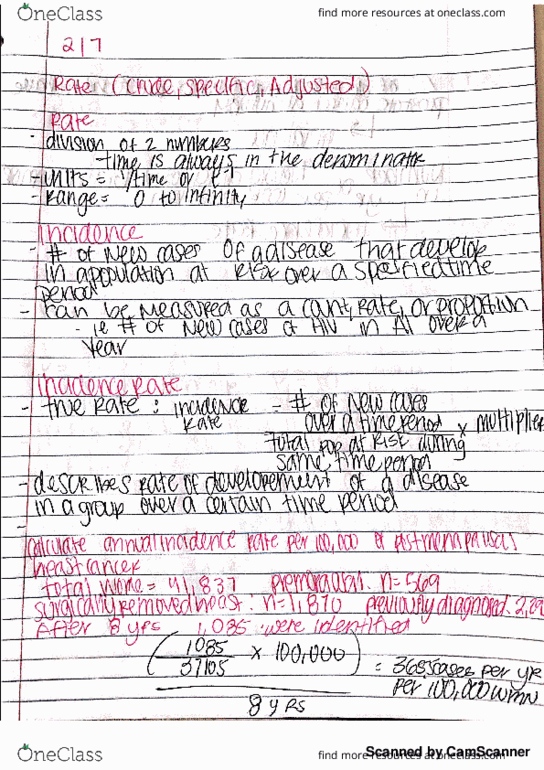 OneClass
find more resources at oneclass.com
2/7
Rate (Crude, specific, Adjusted)
Rate
- division of 2 numbers
- time is always in the denominator
- units = 1/time or t⁻¹
- Range = 0 to infinity
Incidence
- # of New cases of a disease that develop
in a population at risk over a specified time
period
- can be measured as a count, rate, or proportion
- ie # of New cases of HIV in Al over a
year
Incidence Rate
- true rate : incidence rate = # of New cases over a time period x multiplier
total pop at risk during
same time period
- describes rate of developement of a disease
in a group over a certain time period
Calculate annual incidence rate per 100,000 of postmenpausal
breast cancer
total women = 41,837 premenopausal. n=569
surgically removed breast. n=1,870 previously diagnosed. 2,29
After 8 yrs 1,085 were identified
(1085/37105 x 100,000) = 365.5 cases per yr
per 100,000 women
8 yrs
OneClass
find more resources at oneclass.com
Scanned by CamScanner